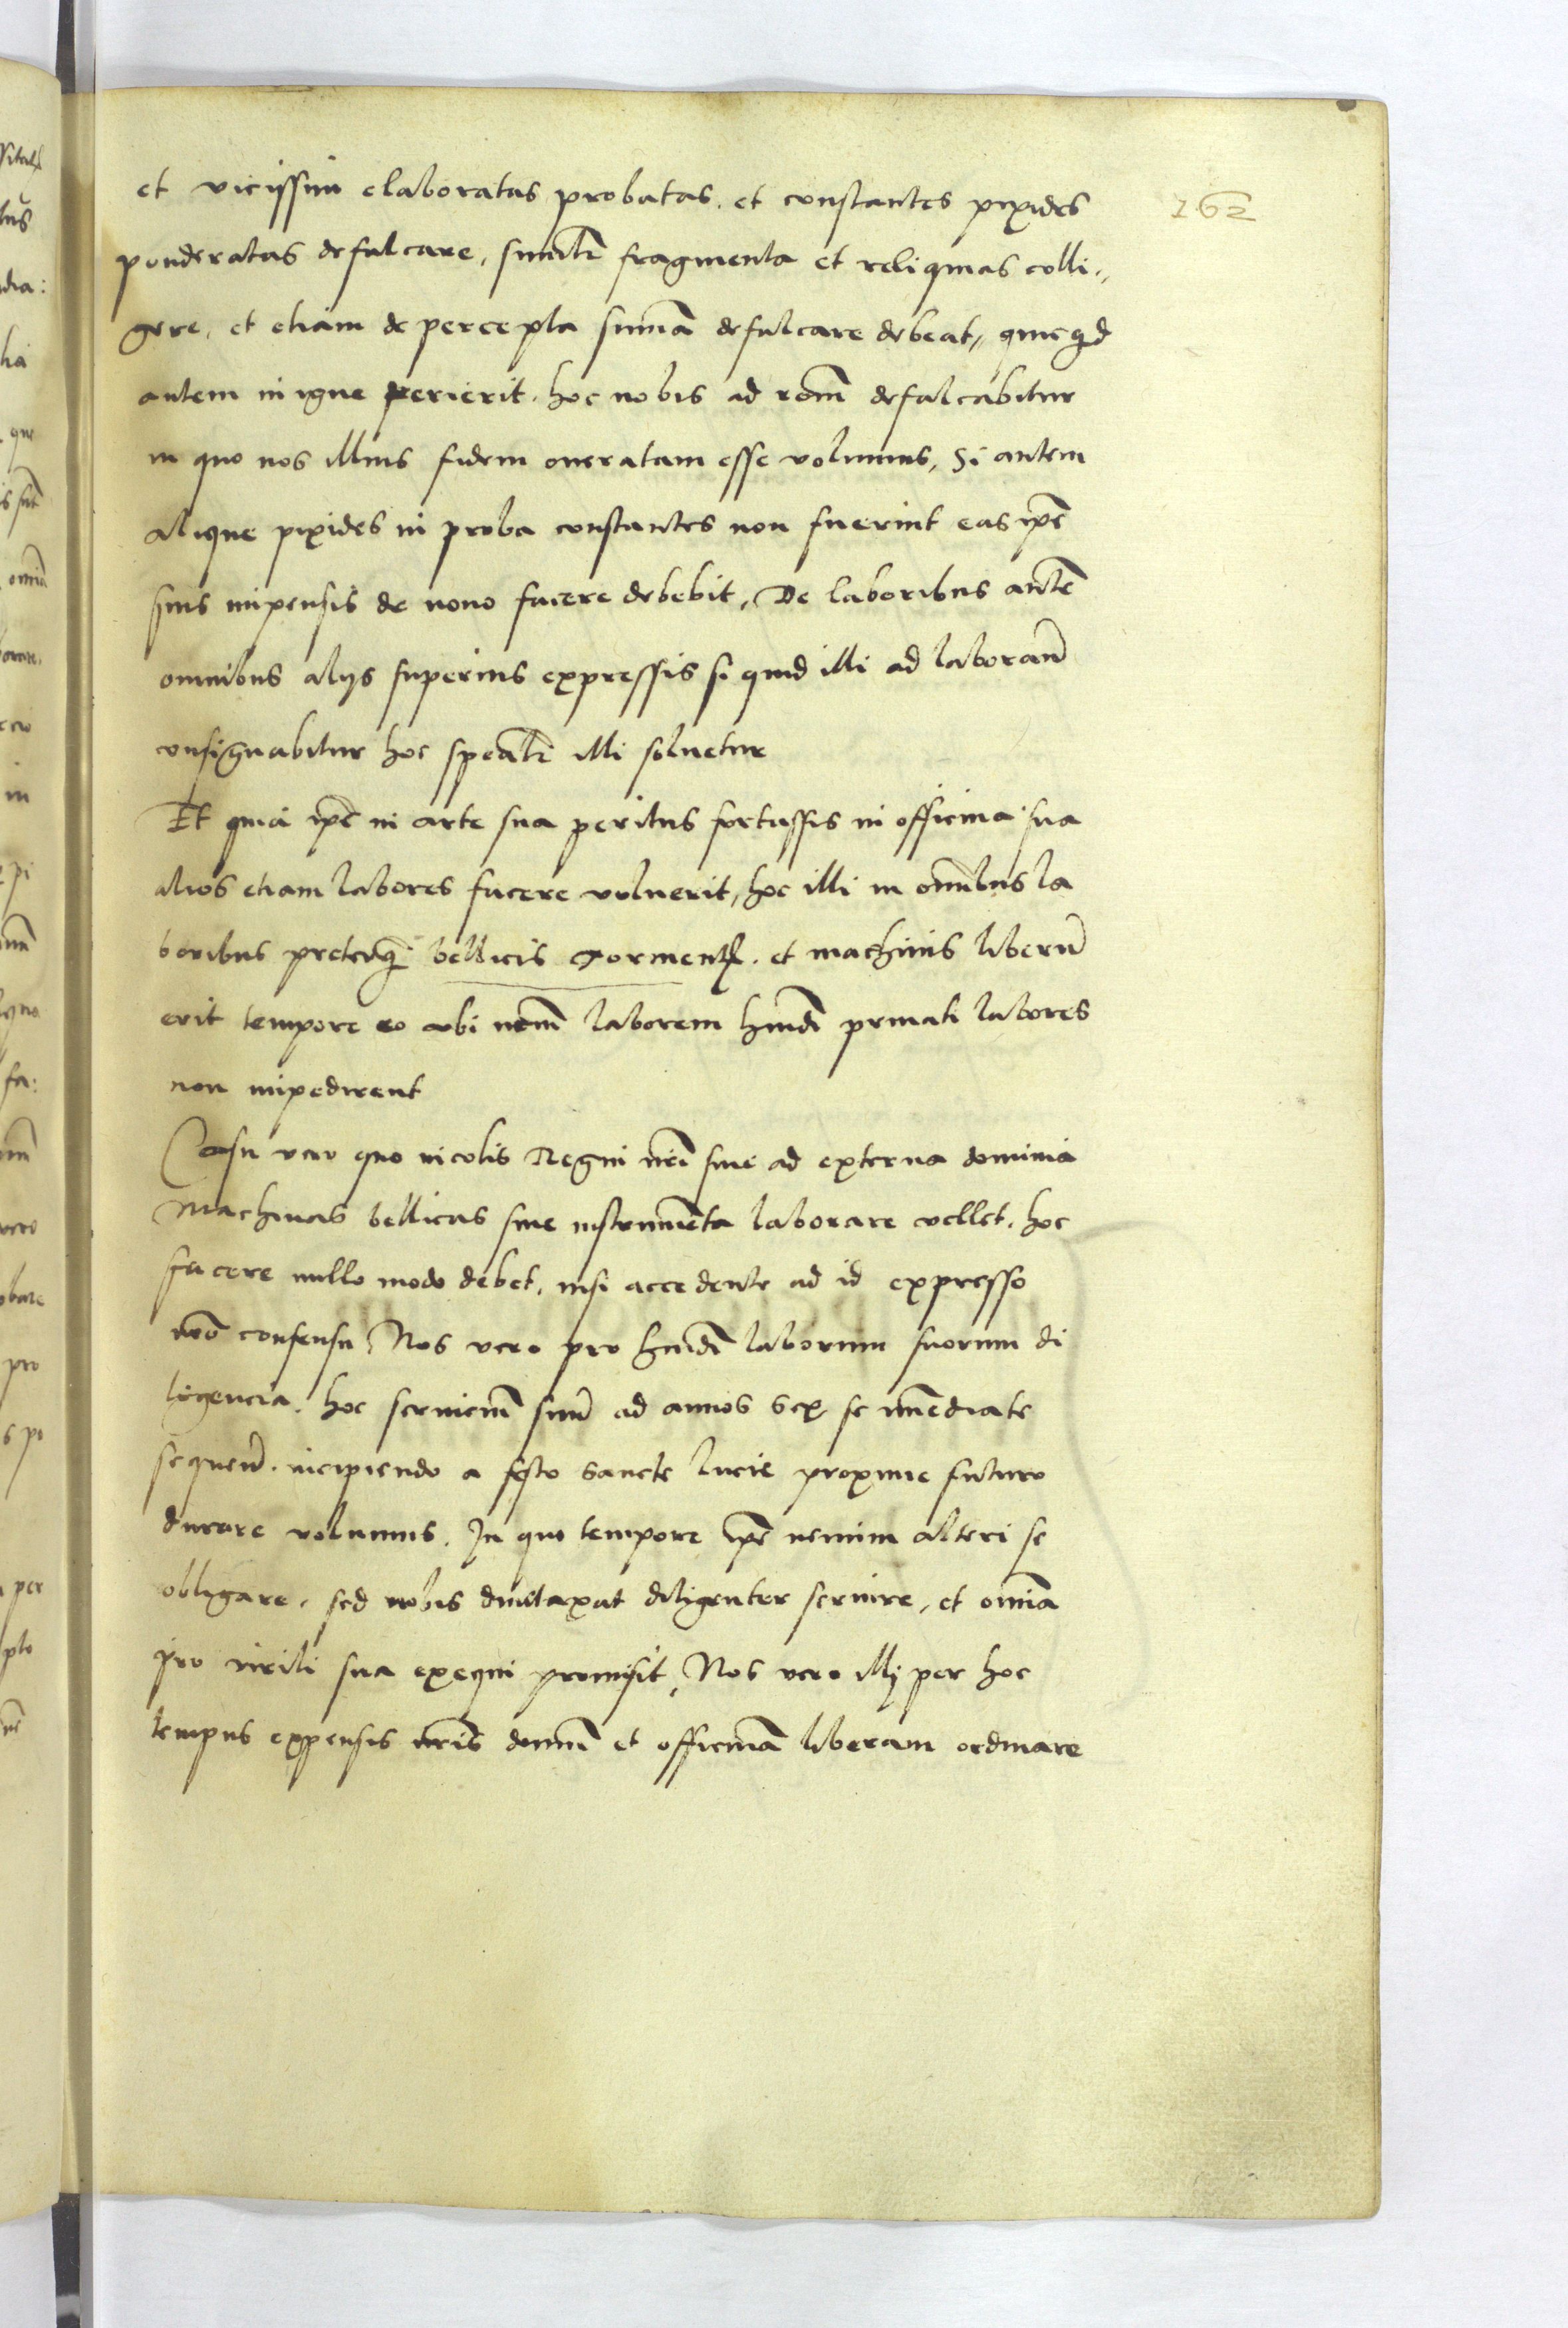 162
et vicissim elaboratas probatas. et constantes pixides
ponderatas defalcare, similr̄ fragmenta et reliquias colli„
gere, et etiam de percepta sumā defalcare debeat, quicqd
autem in igne perierit. hoc nobis ad rōm̄ defalcabitur
in quo nos illius fidem oneratam esse volumus, Si autem
alique pixides in proba constantes non fuerint eas ip̄e
suis impensis de nouo facere debebit, De laboribus aut̄e
omnibus alijs superius expressis si quid illi ad laborand̄
consignabitur hoc spealr̄ illi soluetur
Et quia ip̄e in arte sua peritus fortassis in officina sua
alios etiam labores facere voluerit, hoc illi in omībus la
boribus preterq̄ bellicis tormentꝭ. et machinis liberū
erit tempore eo vbi nr̄m laborem hmōi priuati labores
non impedirent
Casu vero quo incolis Regni nr̄i siue ad externa dominia
Machinas bellicas siue instrumēta laborare vellet. hoc
facere nullo modo debet, nisi accedente ad id expresso
nr̄o consensu, Nos vero pro hmōi laborum suorum di
ligencia. hoc seruiciū suū ad annos sex se imediate
sequen̄. incipiendo a festo sancte lucie proxime futuro
durare volumus. In quo tempore ip̄e nemini alteri se
obligare, sed nobis duntaxat diligenter seruire, et omīa
pro virili sua exequi promisit, Nos vero illj per hoc
tempus expensis nr̄is domū et officinā liberam ordinare